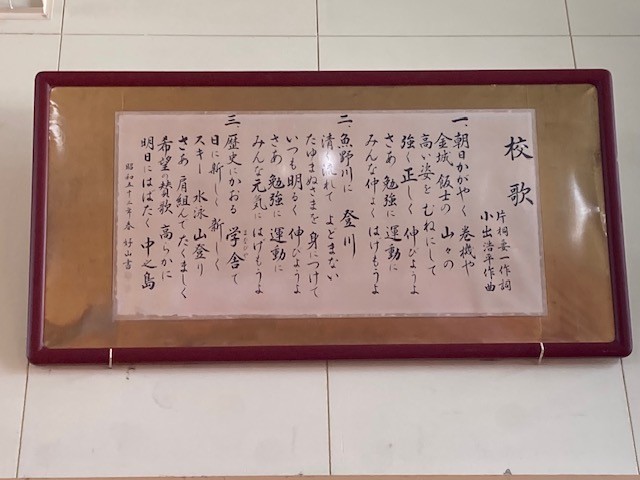 校歌
片桐委一作詞
小出浩平作曲
一、朝日かがやく 巻機や
金城 飯士の 山々の
高い姿を むねにして
強く 正しく 伸びようよ
さあ 勉強に 運動に
みんな 仲よく はげもうよ
二、魚野川に 登川
清い流れて よどまない
たゆまぬさまを 身につけて
いつも明るく 伸びようよ
さあ 勉強に 運動に
みんな元気に はげもうよ
三、歴史にかおる 学舎で
まなびや
日に新しく 新しく
スキー 水泳 山登り
さあ 肩組んで たくましく
希望の賛歌 高らかに
明日にはばたく 中之島
昭和五十二年春 好山書